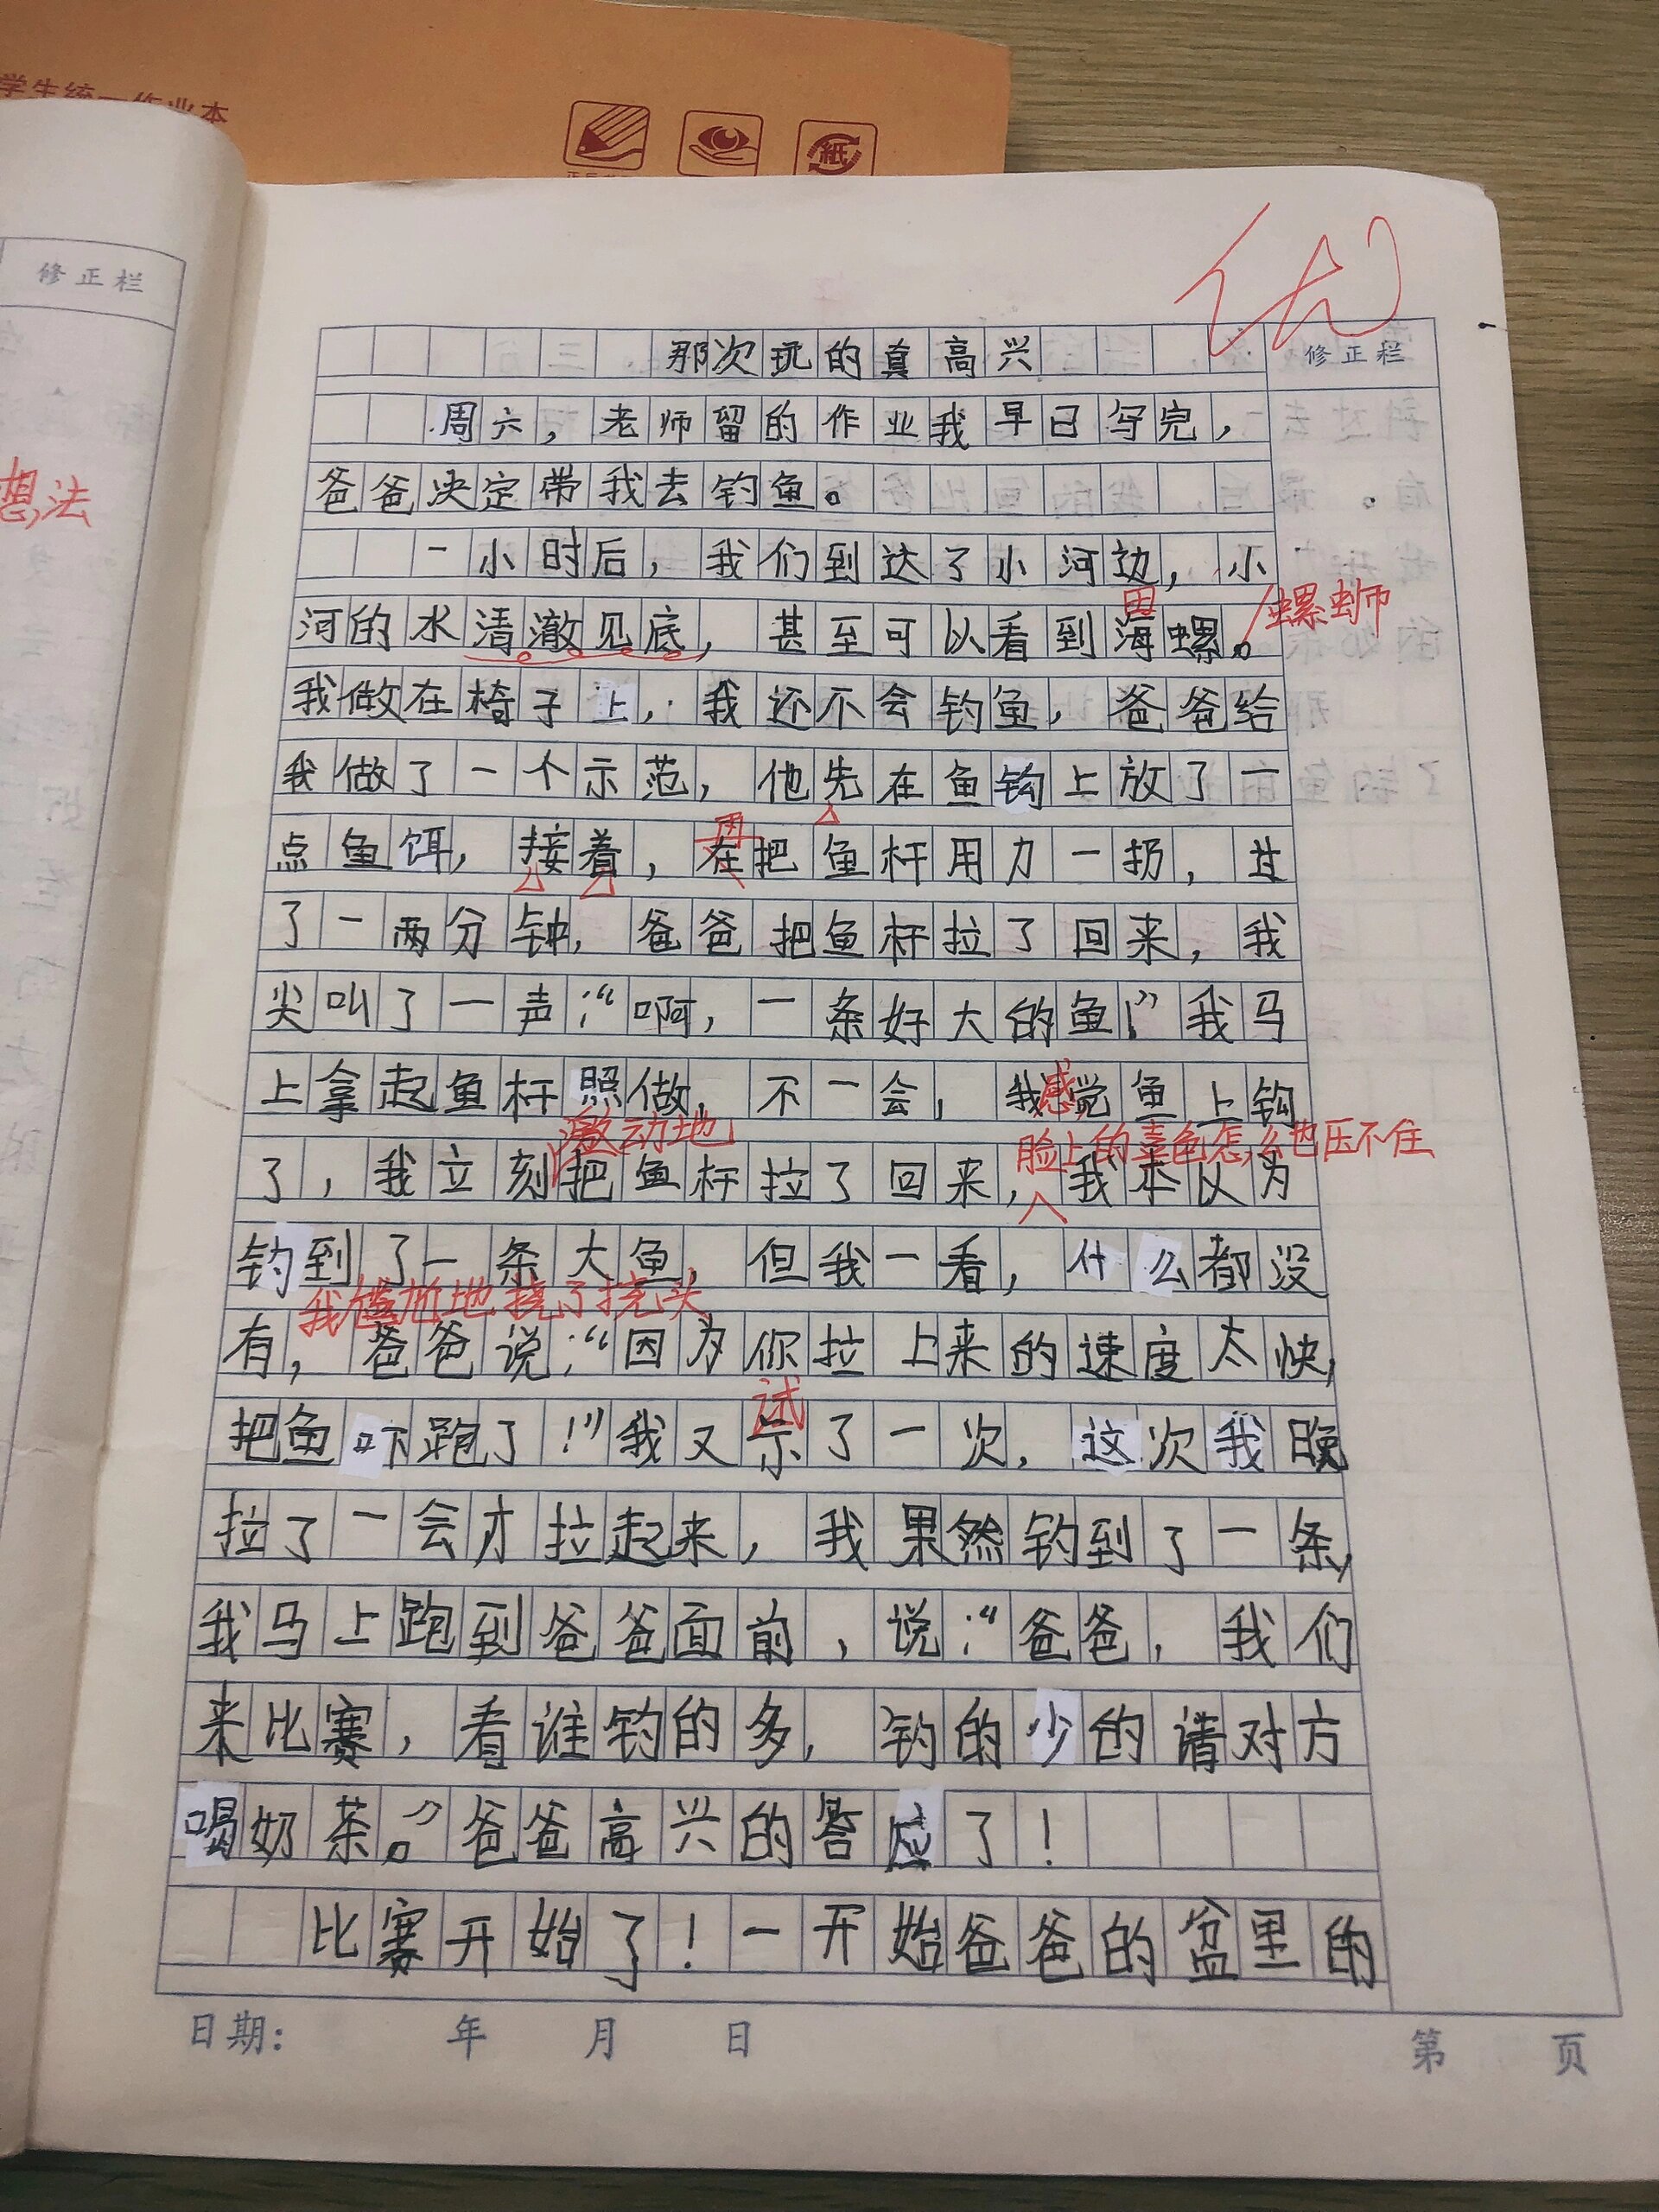 学生统一作业本
紙
修正栏
想法
优
那次玩的真高兴
修正栏
周六，老师留的作业我早已写完，
爸爸决定带我去钓鱼。
一小时后，我们到达了小河边，小
河的水清澈见底，甚至可以看到海螺。
田
螺蛳
我做在椅子上，我还不会钓鱼，爸爸给
我做了一个示范，他先在鱼钩上放了一
点鱼饵，接着，在把鱼杆用力一扔，过
再
了一两分钟，爸爸把鱼杆拉了回来，我
尖叫了一声：“啊，一条好大的鱼！”我马
上拿起鱼杆照做，不一会，我感觉鱼上钩
激动地
脸上的喜色怎么也压不住
了，我立刻把鱼杆拉了回来，我本以为
钓到了一条大鱼，但我一看，什么都没
我尴尬地挠了挠头
有，爸爸说：“因为你拉上来的速度太快，
试
把鱼吓跑了！”我又示了一次，这次我晚
拉了一会才拉起来，我果然钓到了一条，
我马上跑到爸爸面前，说：“爸爸，我们
来比赛，看谁钓的多，钓的少的请对方
喝奶茶。”爸爸高兴的答应了！
比赛开始了！一开始爸爸的盆里的
日期： 年 月 日
第 页